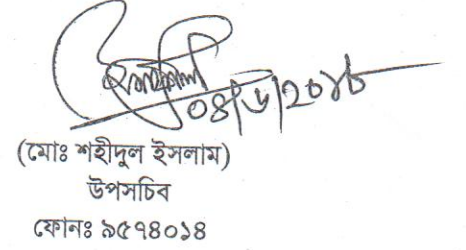 ০৪/৬/২০১৮
(মোঃ শহীদুল ইসলাম)
উপসচিব
ফোনঃ ৯৫৭৪০১৪